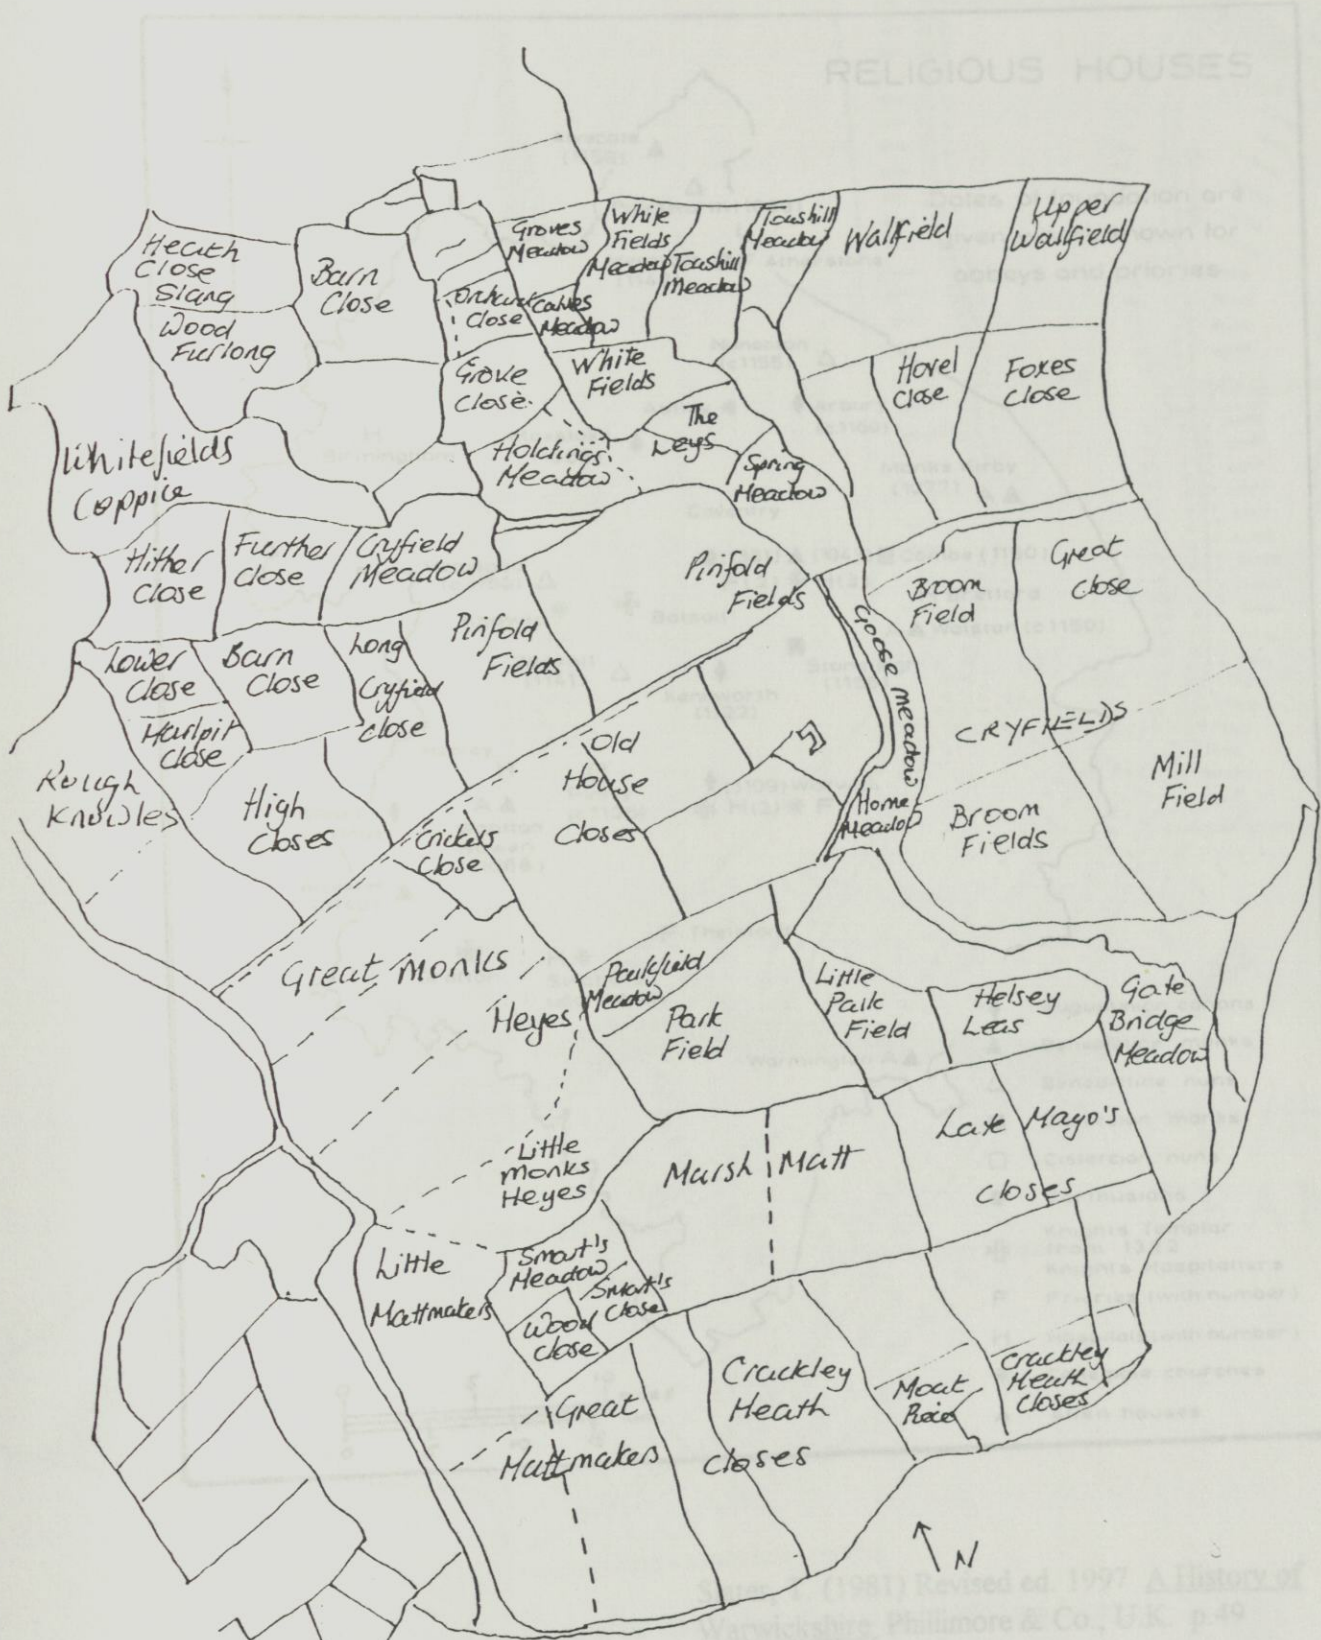 RELIGIOUS HOUSES
Heath
Close
Slang
Wood
Furlong
Barn
Close
Groves
Meadow
White
Fields
Meadow
Toashill
Meadow
Toashill
Meadow
Wallfield
Upper
Wallfield
Orchard
Close
Calves
Meadow
Grove
Close
White
Fields
The
Leys
Hovel
Close
Foxes
Close
Whitefields
Coppice
Holdings
Meadow
Spring
Meadow
Hither
Close
Further
Close
Cryfield
Meadow
Pinfold
Fields
Broom
Field
Great
Close
Lower
Close
Barn
Close
Long
Cryfield
Close
Pinfold
Fields
Goose Meadow
Marlpit
Close
Rough
Knowles
High
Closes
Crickets
Close
Old
House
Closes
Home
Meadow
CRYFIELDS
Broom
Fields
Mill
Field
Great Monks
Heyes
Parkfield
Meadow
Park
Field
Little
Park
Field
Helsey
Leas
Gate
Bridge
Meadow
Little
Monks
Heyes
Marsh Matt
Late Mayo's
Closes
Little
Mattmakers
Smart's
Meadow
Smart's
Close
Wood
Close
Great
Mattmakers
Crackley
Heath
Closes
Moat
Crackley
Heath
Closes
N
(1981) Revised ed. 1997 A History of
Warwickshire, Phillimore & Co., U.K. p.49